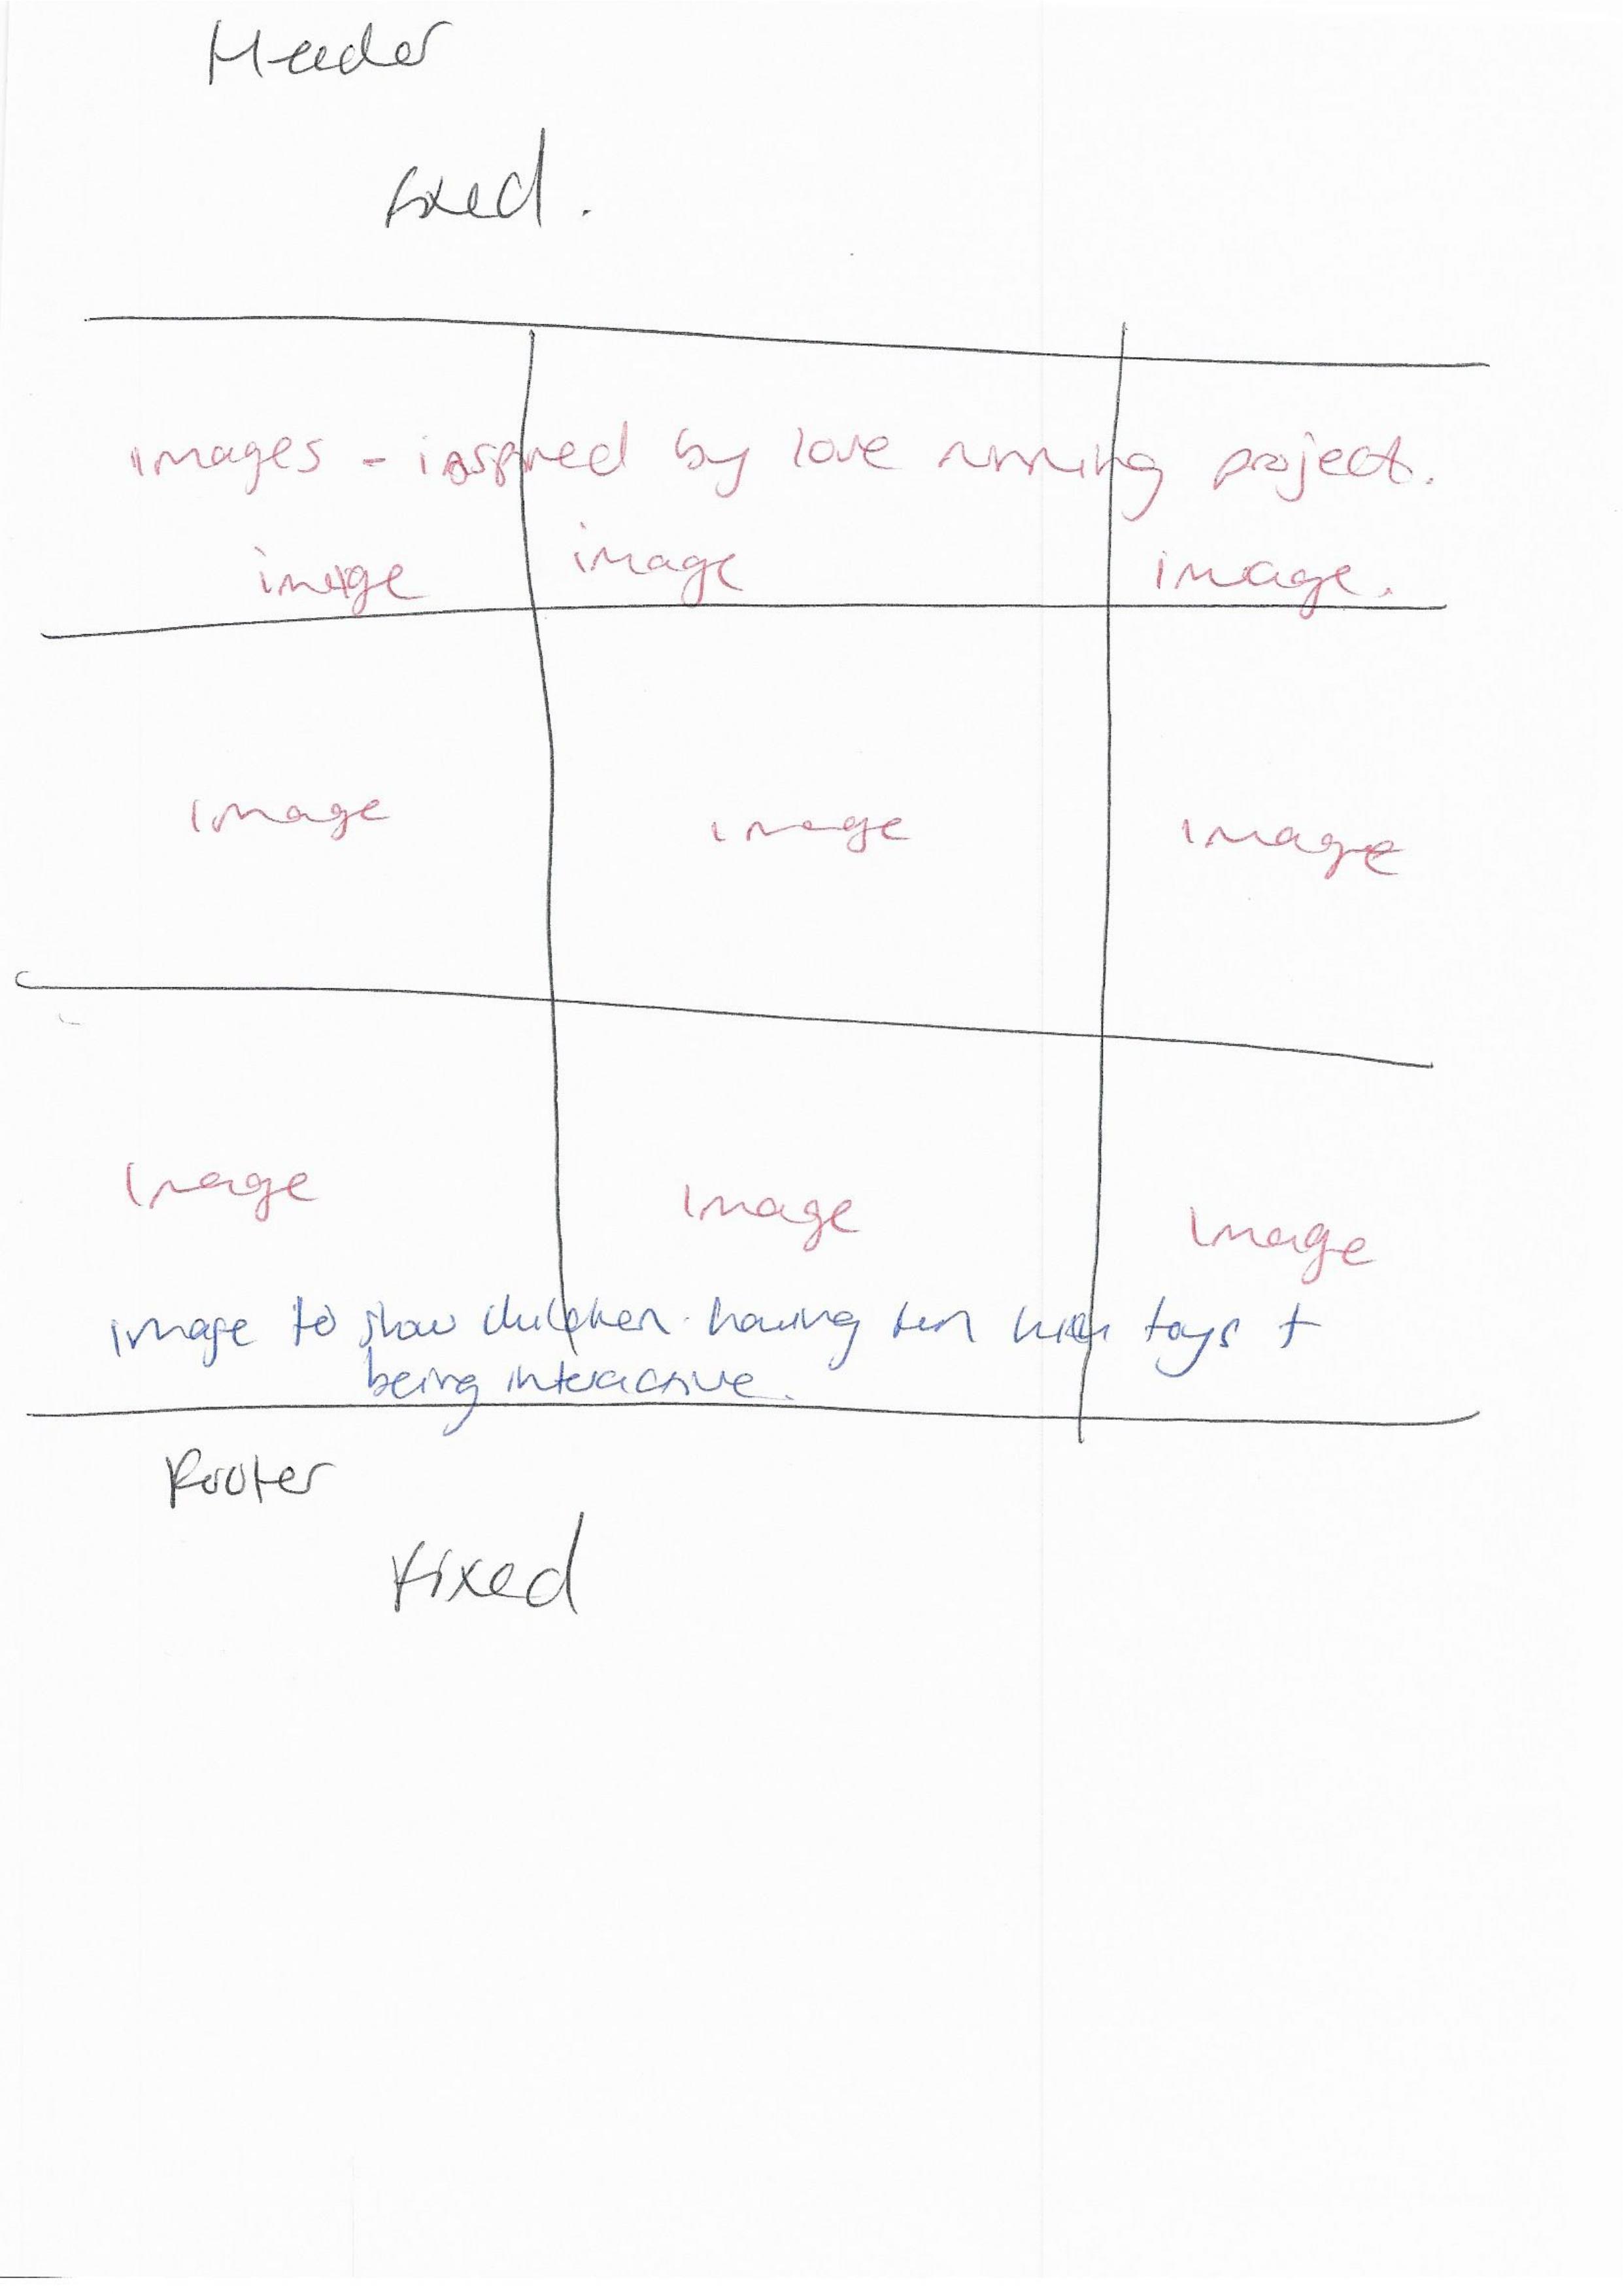 Header
fixed.
images - inspired by love running project.
image image image.
image image image
Image Image Image
image to show children having fun with toys +
being interactive.
Footer
fixed